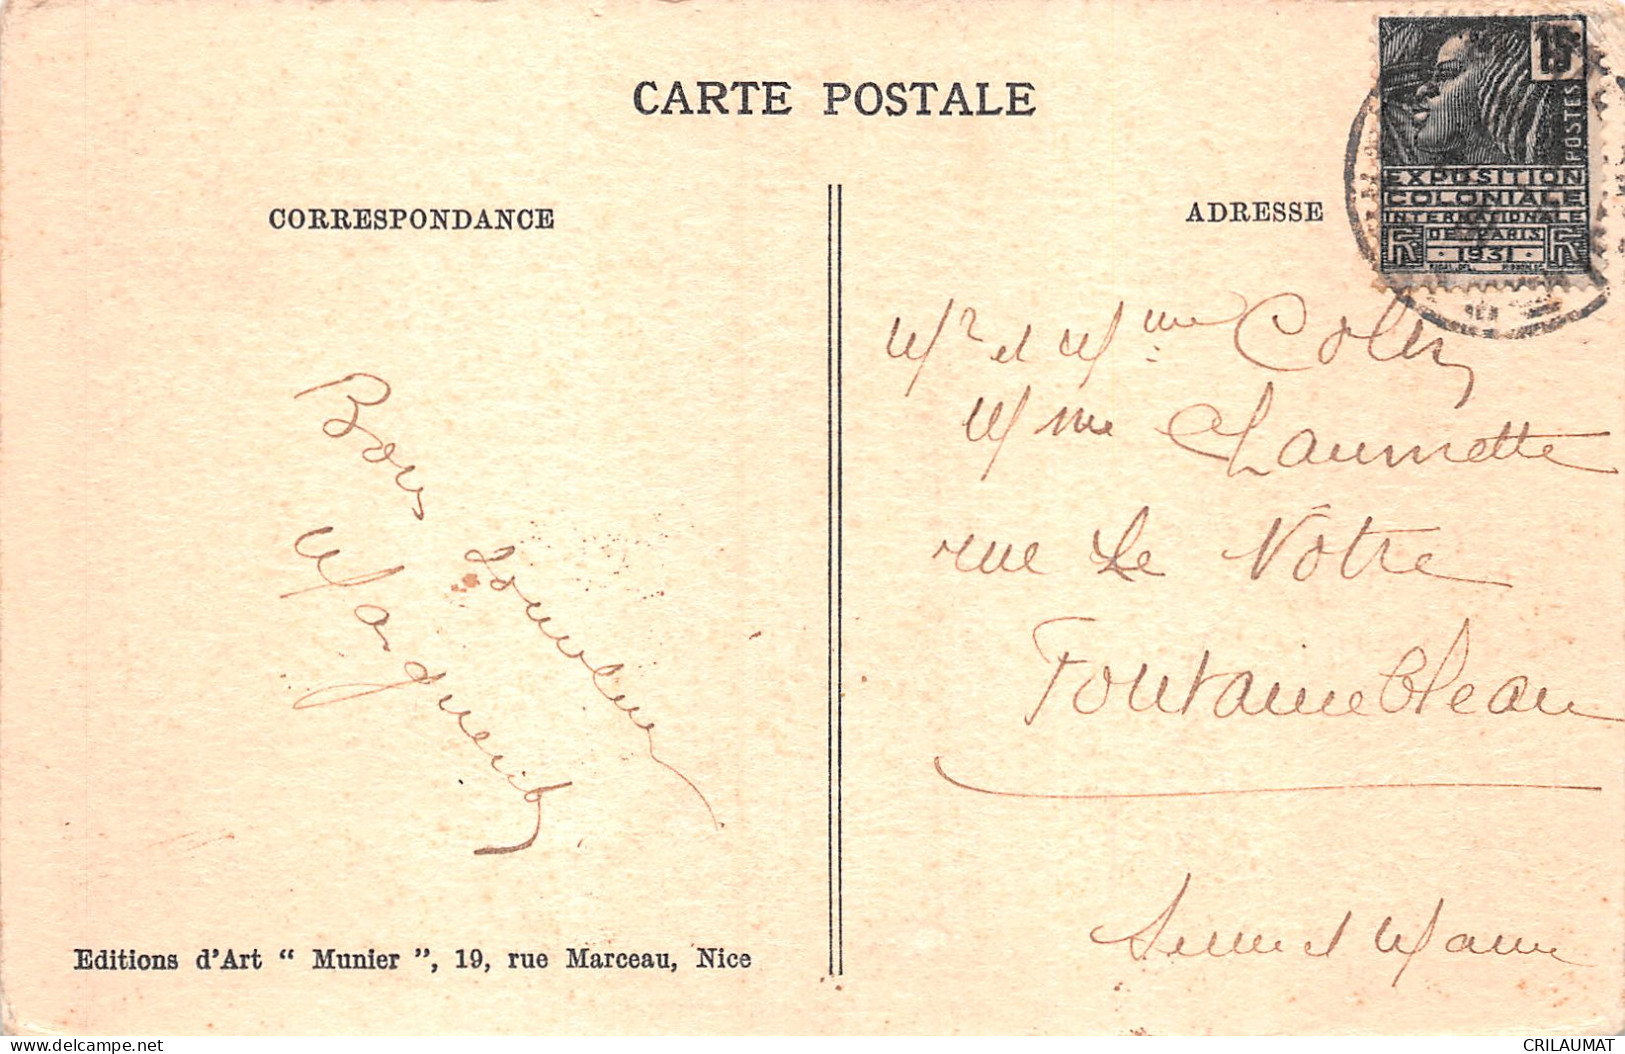 CARTE POSTALE
CORRESPONDANCE
ADRESSE
15
POSTES
EXPOSITION
COLONIALE
INTERNATIONALE
DE PARIS
1931
Bons
souvenirs
Marguerite
Mr et Mme
Mme Chaumette
rue Le Notre
Fontainebleau
Seine et Marne
Editions d'Art " Munier ", 19, rue Marceau, Nice
delcampe.net
CRILAUMAT